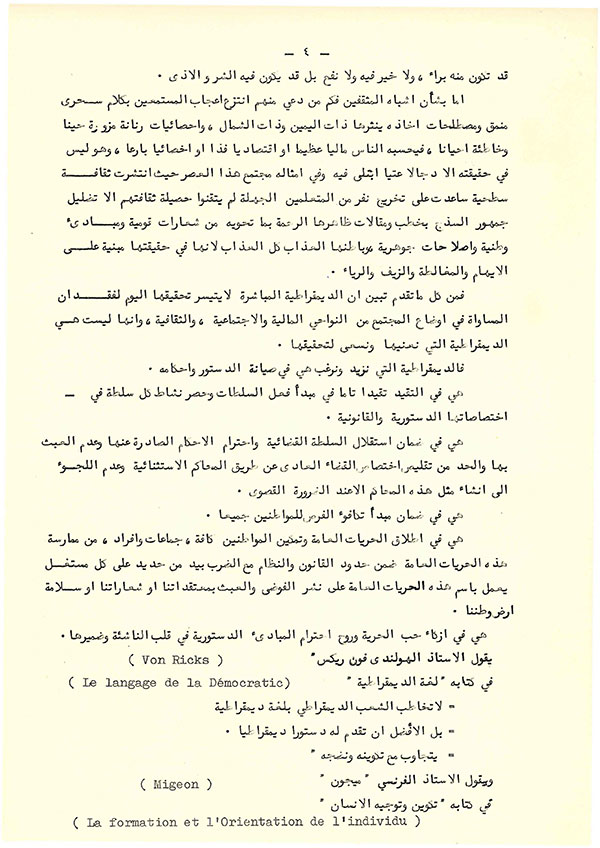 — ٤ —
قد تكون منه براء ، ولا خير فيه ولا نفع بل قد يكون فيه الشر والاذى .
اما بشأن اشباه المثقفين فكم من دعي منهم انتزع اعجاب المستمعين بكلام سحرى
منمق ومصطلحات اخاذه ينثرها ذات اليمين وذات الشمال ، واحصائيات رنانة مزورة حينا
وخاطئة احيانا ، فيحسبه الناس ماليا عظيما او اقتصاديا فذا او اخصائيا بارعا ، وهو ليس
في حقيقته الا دجالا عتيا ابتلى فيه وفي امثاله مجتمع هذا العصر حيث انتشرت ثقافة
سطحية ساعدت على تخريج نفر من المتعلمين الجهلة لم يتقنوا حصيلة ثقافتهم الا تضليل
جمهور السذج بخطب ومقالات ظاهرها الرحمة بما تحويه من شعارات قومية ومبادئ
وطنية واصلاحات جوهرية وباطنها العذاب كل العذاب لانها في حقيقتها مبنية على
الايهام والمغالطة والزيف والرياء .
فمن كل ماتقدم تبين ان الديمقراطية المباشرة لايتيسر تحقيقها اليوم لفقدان
المساواة في اوضاع المجتمع من النواحي المالية والاجتماعية ، والثقافية ، وانها ليست هي
الديمقراطية التي نعنيها ونسعى لتحقيقها .
فالديمقراطية التي نريد ونرغب هي في صيانة الدستور واحكامه .
هي في التقيد تقيدا تاما في مبدأ فصل السلطات وحصر نشاط كل سلطة في —
اختصاصاتها الدستورية والقانونية .
هي في ضمان استقلال السلطة القضائية واحترام الاحكام الصادرة عنها وعدم العبث
بها والحد من تقليص اختصاص القضاء العادى عن طريق المحاكم الاستثنائية وعدم اللجوء
الى انشاء مثل هذه المحاكم الاعند الضرورة القصوى .
هي في ضمان مبدأ تكافوء الفرص للمواطنين جميعا .
هي في اطلاق الحريات العامة وتمكين المواطنين كافة ، جماعات وافراد ، من ممارسة
هذه الحريات العامة ضمن حدود القانون والنظام مع الضرب بيد من حديد على كل مستغل
يعمل باسم هذه الحريات العامة على نشر الفوضى والعبث بمعتقداتنا او شعاراتنا او سلامة
ارض وطننا .
هي في ازكاء حب الحرية وروح احترام المبادئ الدستورية في قلب الناشئة وضميرها .
يقول الاستاذ الهولندى فون ريكس" ( Von Ricks )
في كتابه "لغة الديمقراطية " ( Le langage de la Démocratic)
= لاتخاطب الشعب الديمقراطي بلغة ديمقراطية
= بل الأفضل ان تقدم له دستورا ديمقراطيا .
= يتجاوب مع تكوينه ونضجه "
ويقول الاستاذ الفرنسي "ميجون " ( Migeon )
في كتابه "تكوين وتوجيه الانسان "
( La formation et l'Orientation de l'individu )